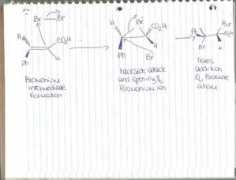 Br Br
H CO₂H
Ph
Bromonium
intermediate
formation
Br
H CO₂H
Ph Br
backside attack
and opening of
Bromonium ion
Br
Br
trans
addition
of Bromine
atoms